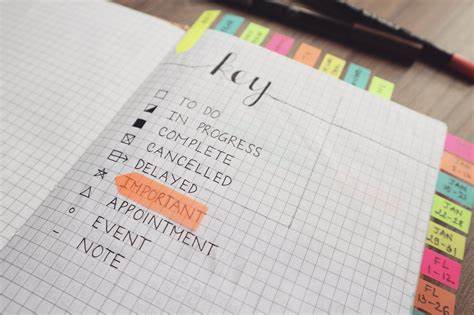 key
TO DO
IN PROGRESS
COMPLETE
CANCELLED
DELAYED
IMPORTANT
APPOINTMENT
EVENT
NOTE
JAN
22-28
JAN
29-31
FL
1-12
FL
13-26